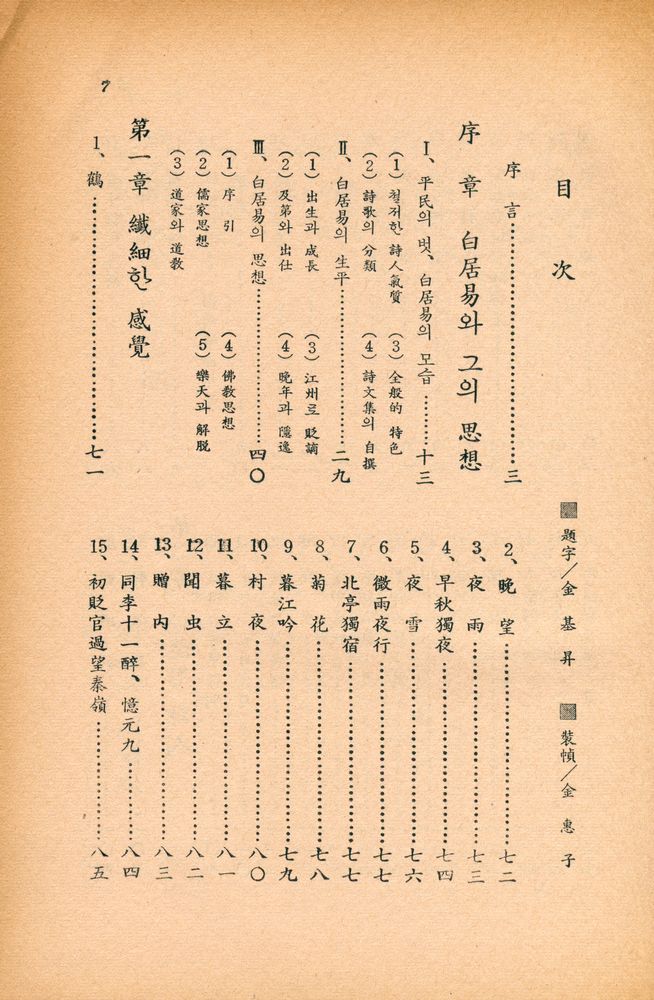 目次
■ 題字／金基昇 ■ 裝幀／金惠子
序言……三
序章 白居易와 그의 思想
Ⅰ、平民의 벗、白居易의 모습……十三
(1) 철저한 詩人氣質 (3) 全般的 特色
(2) 詩歌의 分類 (4) 詩文集의 自撰
Ⅱ、白居易의 生平……二九
(1) 出生과 成長 (3) 江州로 貶謫
(2) 及第와 出仕 (4) 晩年과 隱逸
Ⅲ、白居易의 思想……四〇
(1) 序引 (4) 佛敎思想
(2) 儒家思想 (5) 樂天과 解脫
(3) 道家와 道敎
第一章 纖細한 感覺
1、鶴……七一
2、晩望……七二
3、夜雨……七三
4、早秋獨夜……七四
5、夜雪……七六
6、微雨夜行……七七
7、北亭獨宿……七七
8、菊花……七八
9、暮江吟……七九
10、村夜……八〇
11、暮立……八一
12、聞虫……八二
13、贈內……八三
14、同李十一醉、憶元九……八四
15、初貶官過望秦嶺……八五
7